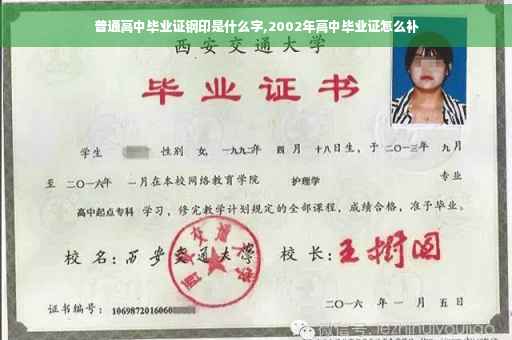 普通高中毕业证钢印是什么字,2002年高中毕业证怎么补
西安交通大学
毕业证书
学生 性别 女, 一九九二年 四 月 十八日生, 于 二〇一三年 九月
至 二〇一六年 一月在本校网络教育学院 护理学 专业
高中起点专科 学习, 修完教学计划规定的全部课程, 成绩合格, 准予毕业。
校 名: 西安交通大学 校 长: 王树国
西安交通大学
证书编号: 1069872016060
二〇一六 年 一 月 五 日
微信号: jezhinuiyoujiao